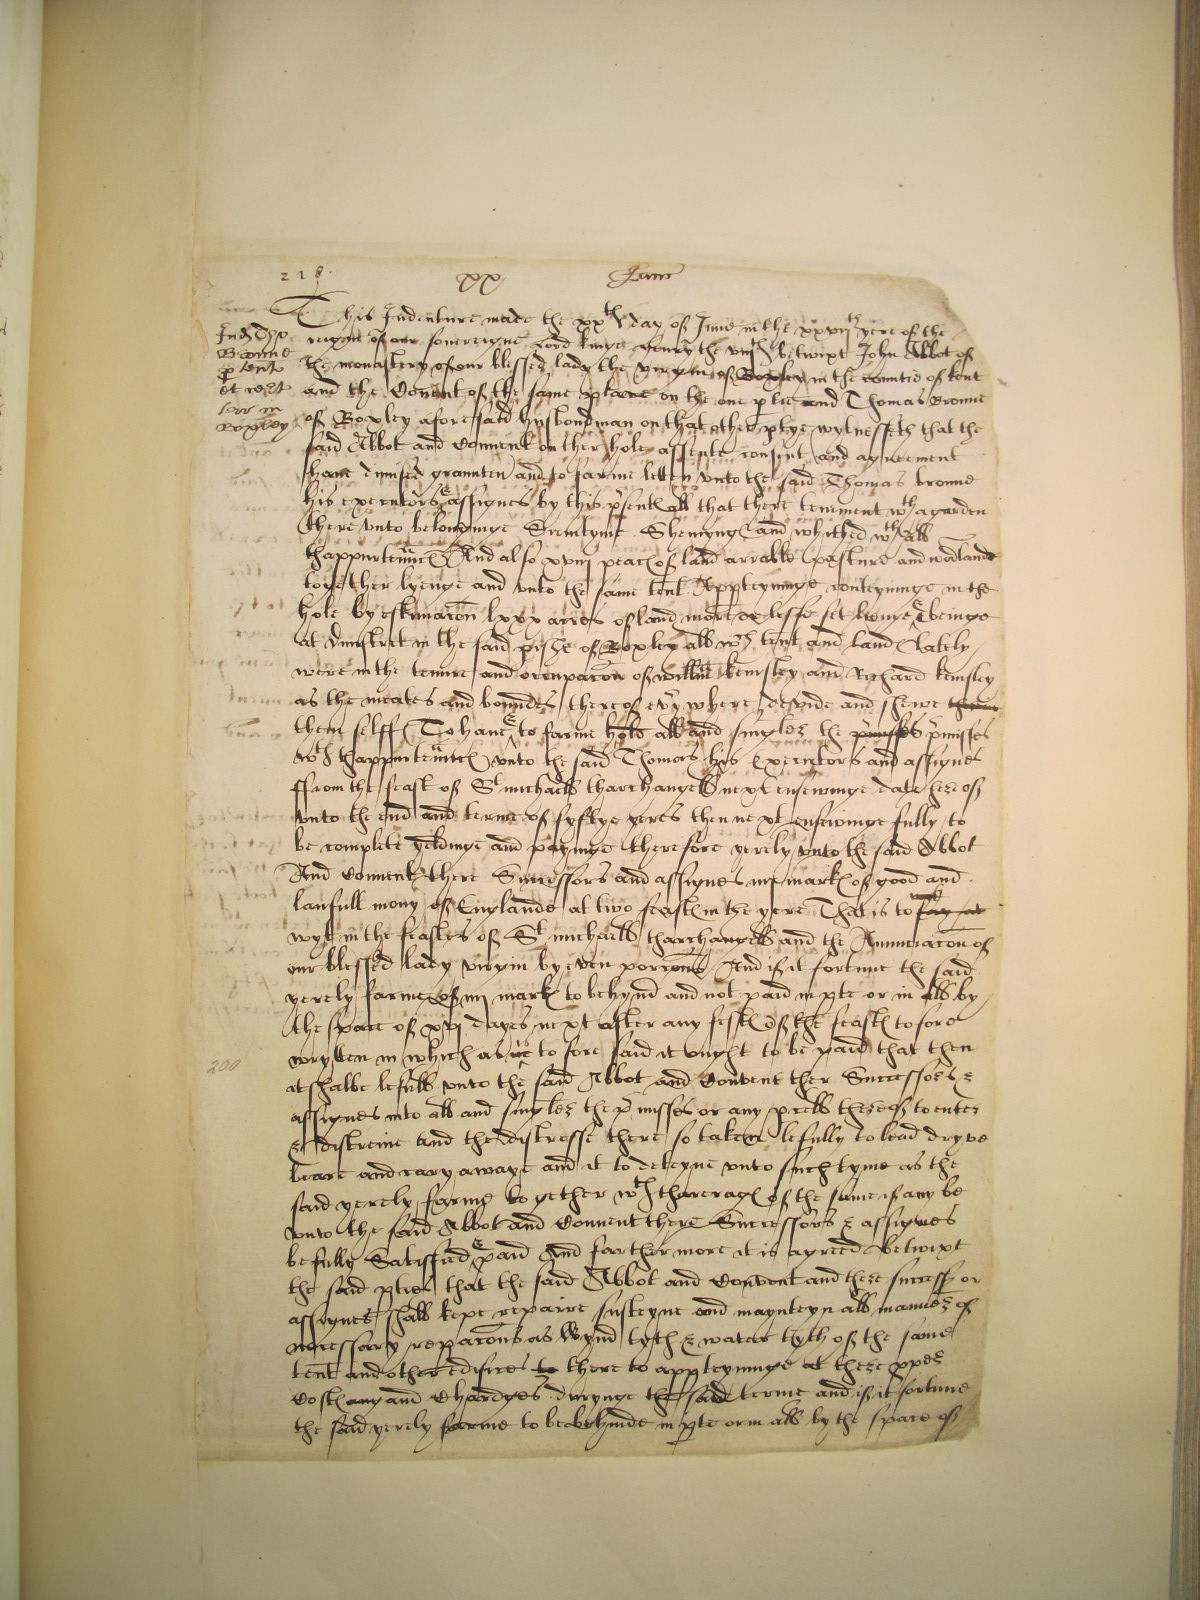 218 xx June
This Indenture made the xxth day of June in the xxvijth yere of the
Indr Tho
Browne
p tent
et
in
Boxley
reigne of our sovereigne lord kinge henry the viijth betwixt John Abbot of
the monastery of our blessed lady the virgin of Boxley in the countie of kent
and the Convent of the same place on the one ptie and Thomas Bronne
of Boxley aforesaid husbondman on that other ptye wytnesseth that the
said Abbot and Convent on ther hole assente consent and agreement
have dimised graunten and to farme letten unto the said Thomas bronne
his executors & assignes by this psente all that there tenement wth a garden
there unto belonginge and whithed wth all
thappurtennce And also xviij peace of land arrable pasture and woodlande
together lyenge and unto the same tent Apperteyninge conteyninge in the
hole by estimacon lxxx acres of land more or lesse set lienge & beinge
at in the said pishe of Boxley all wch tent and land lately
were in the tenure and occupacon of willm kemsley and Richard kemsley
as the meates and boundes thereof every where devide and shewe
them selff To have & to farme hold all and singler the pmisses pmisses
wth thappurtennce unto the said Thomas his executors and assignes
ffrom the feast of St michaell tharchangell next ensewinge date hereof
unto the end and terme of fyftye yeres then next ensewinge fully to
be complete yeldinge and payinge therefore yerely unto the said Abbot
And Convent there Successors and assignes iiij mark of good and
laufull mony of Englande at two feast in the yere That is to say at
wyt in the feastes of St michaell tharchangell and the Annunciacon of
our blessed lady virgin by even porcons And if it fortune the said
yerely farme of iiij mark to behynd and not paid in pte or in all by
the space of xvj dayes next after any fest of the feast to fore
wrytten in which as is to fore said it ought to be paid that then
200
it shalbe lefull unto the said Abbot and Convent ther Successors &
assignes into all and singler the pmisses or any pcell thereof to enter
& distreine and the distresse there so taken lefully to lead dryve
beare and cary awaye and it to deteyne unto such tyme as the
said yerely farme to gether wth tharerag of the same if any be
unto the said Abbot and Convent there Successors & assignes
be fully Satisfied & paid And farthermore it is agreed betwixt
the said pties that the said Abbot and Convent and there success or
assignes shall kepe repaire susteyne and maynteyn all maner of
necessary reparcons as Wynd tyth & water tyth of the same
tent and other edifices to there to apperteyninge at there pper
Cost any and Chardges duringe the said terme and if it fortune
the said yerely farme to be behinde in pte or in all by the space of